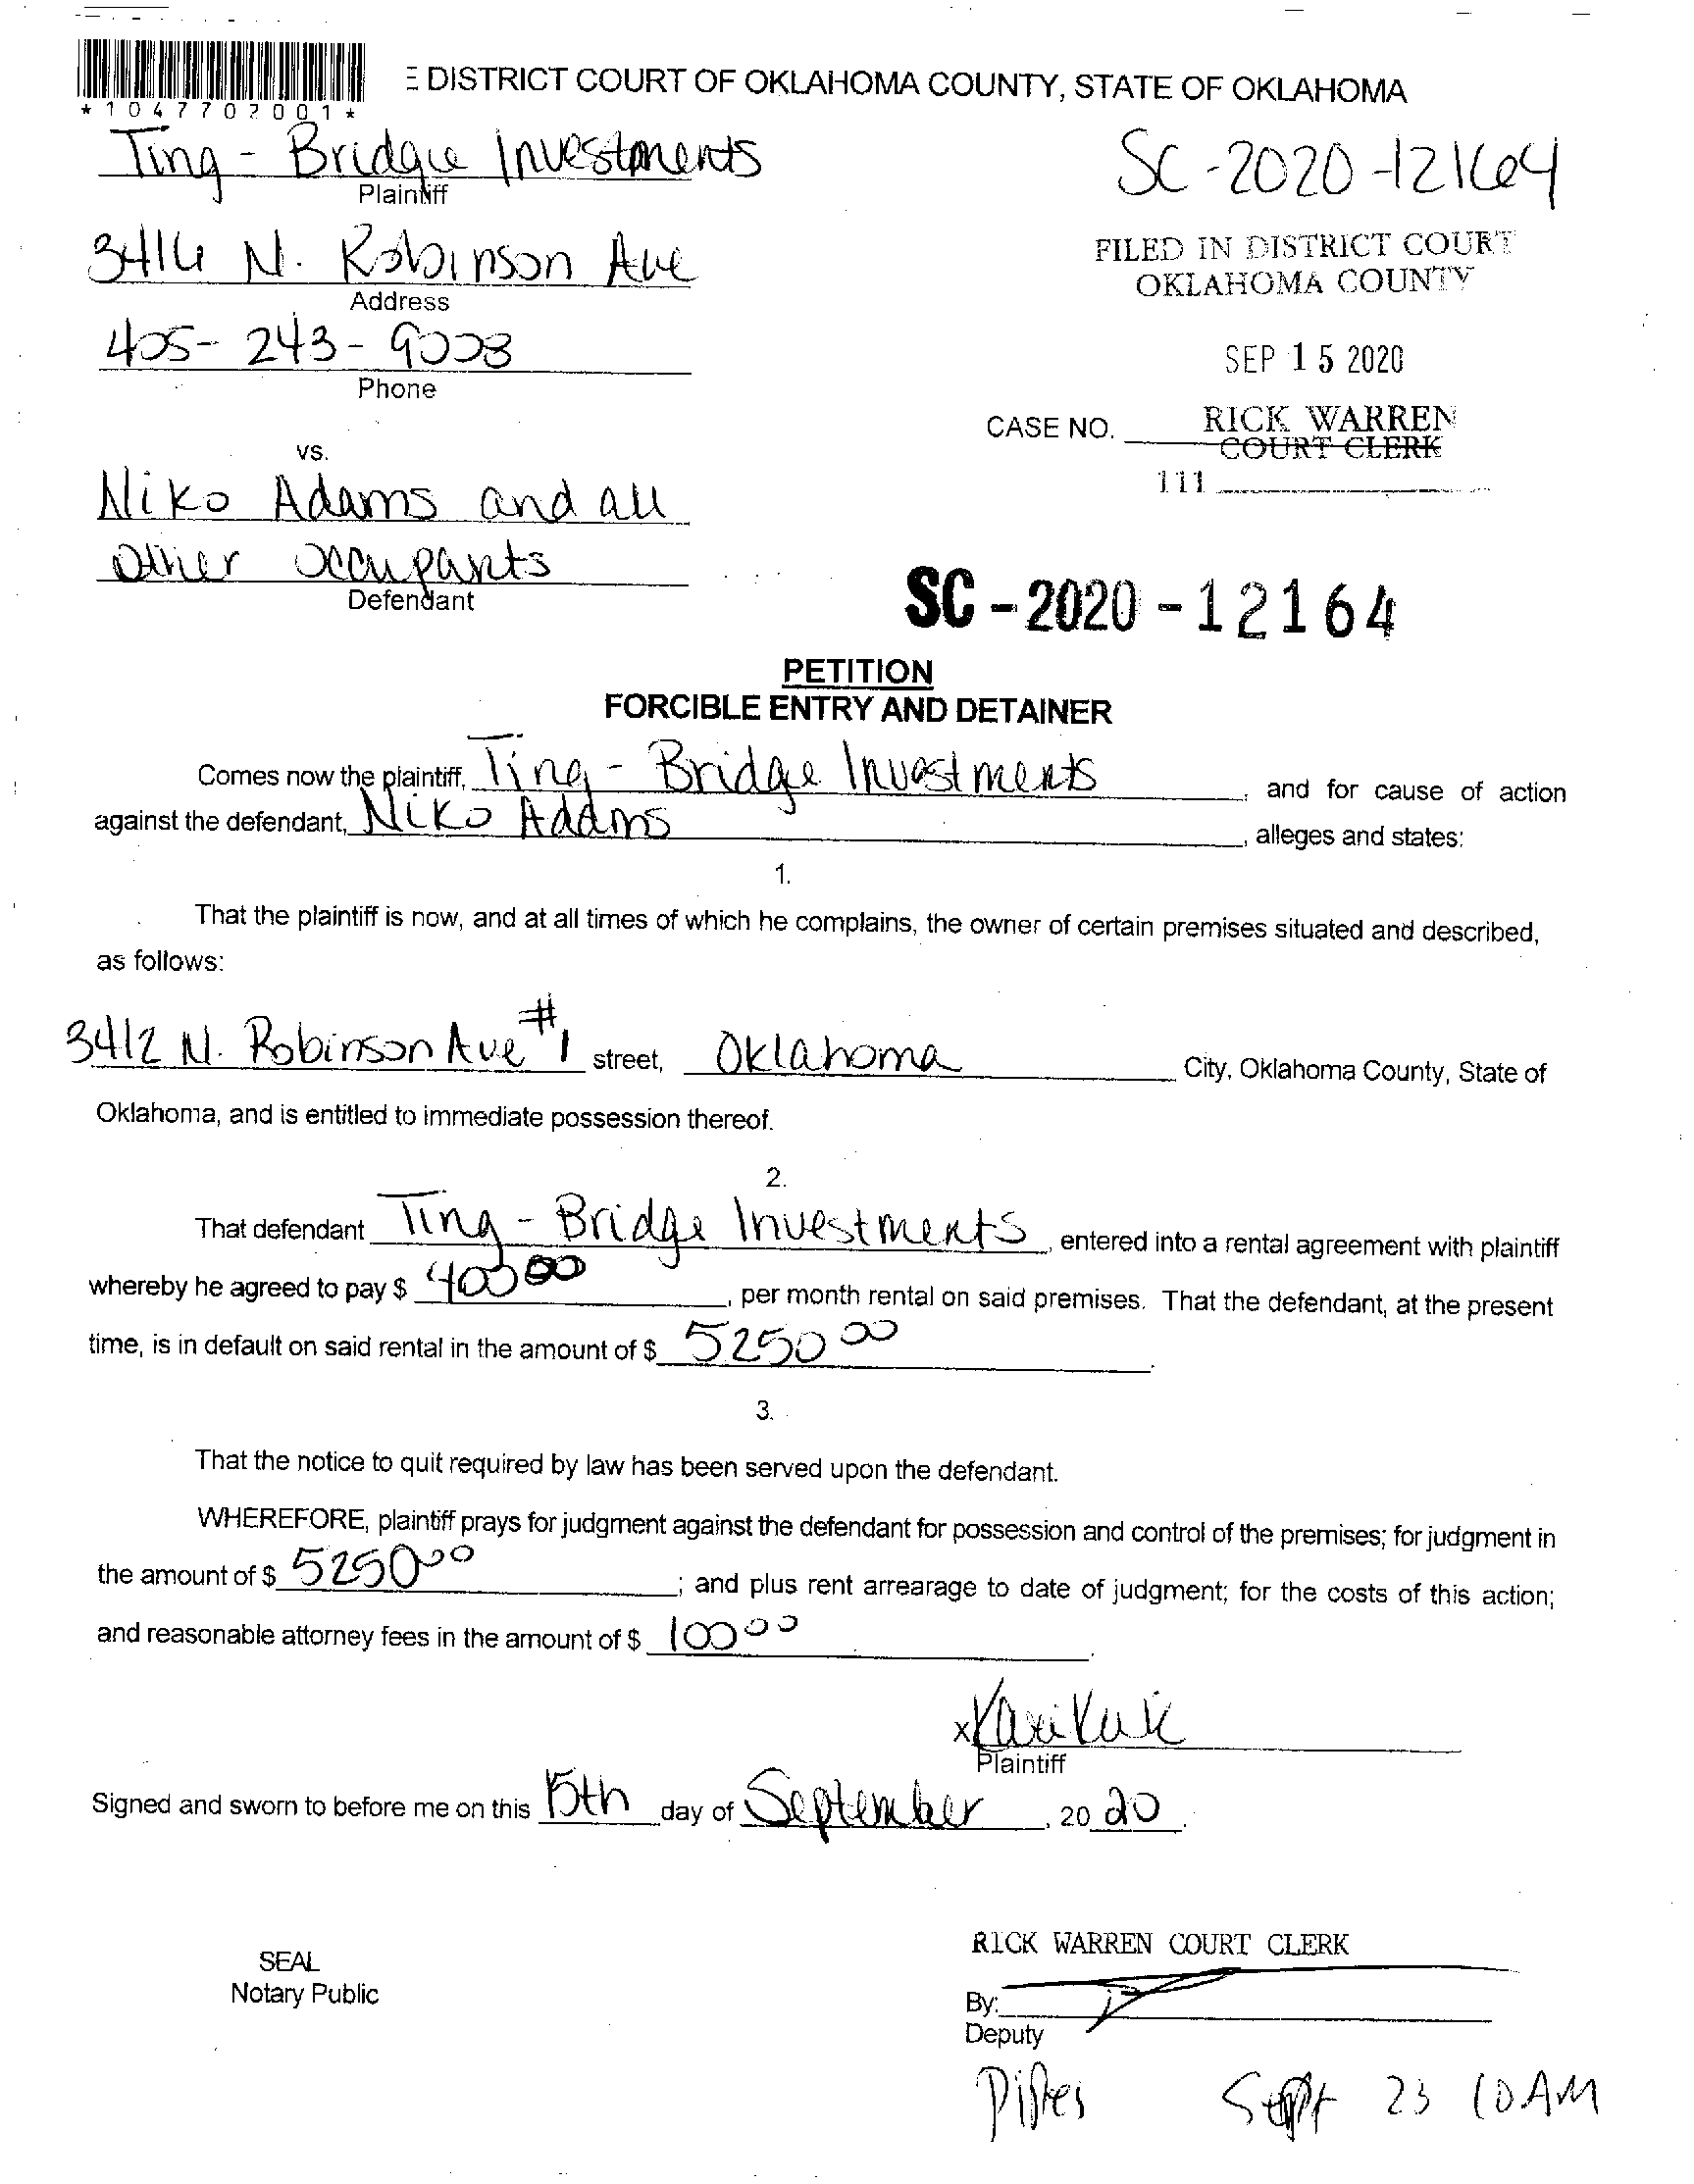 *1047702001*
E DISTRICT COURT OF OKLAHOMA COUNTY, STATE OF OKLAHOMA
Ting - Bridge Investments
Plaintiff
SC-2020-12164
3414 N. Robinson Ave
Address
FILED IN DISTRICT COURT
OKLAHOMA COUNTY
405-243-9008
Phone
SEP 15 2020
CASE NO. RICK WARREN
COURT CLERK
111
vs.
Niko Adams and all
Other Occupants
Defendant
SC-2020-12164
PETITION
FORCIBLE ENTRY AND DETAINER
Comes now the plaintiff, Ting - Bridge Investments, and for cause of action
against the defendant, Niko Adams, alleges and states:
1.
That the plaintiff is now, and at all times of which he complains, the owner of certain premises situated and described,
as follows:
3412 N. Robinson Ave #1 street, Oklahoma City, Oklahoma County, State of
Oklahoma, and is entitled to immediate possession thereof.
2.
That defendant Ting - Bridge Investments, entered into a rental agreement with plaintiff
whereby he agreed to pay $ 400 00, per month rental on said premises. That the defendant, at the present
time, is in default on said rental in the amount of $ 5250 00.
3.
That the notice to quit required by law has been served upon the defendant.
WHEREFORE, plaintiff prays for judgment against the defendant for possession and control of the premises; for judgment in
the amount of $ 5250 00; and plus rent arrearage to date of judgment; for the costs of this action;
and reasonable attorney fees in the amount of $ 100 00.
x
Plaintiff
Signed and sworn to before me on this 15th day of September, 20 20.
SEAL
Notary Public
RICK WARREN COURT CLERK
By:
Deputy
Sept 23 10AM